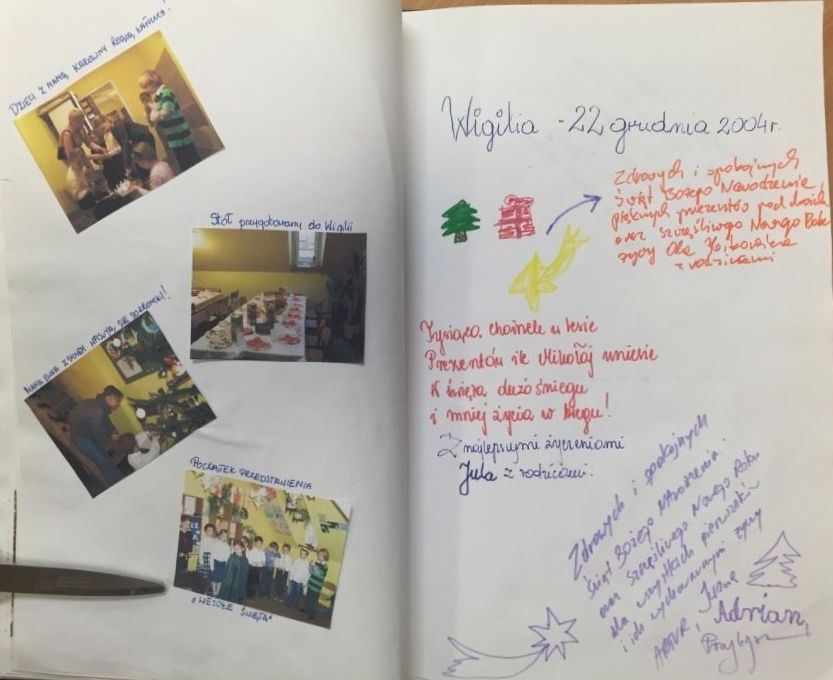 DZIECI Z MAMĄ KAROLINY ROBIĄ ŁAŃCUCH!
Stół przygotowany do Wigilii
MAMA EWKA Z SYNEM WPISUJĄ SIĘ DO KRONIKI!
POCZĄTEK PRZEDSTAWIENIA
"WESOŁE ŚWIĘTA"
Wigilia - 22 grudnia 2004r.
Zdrowych i spokojnych
Świąt Bożego Narodzenia,
pięknych prezentów pod choinką
oraz szczęśliwego Nowego Roku
życzy Ola
z rodzicami
Tysiąca choinek w lesie
Prezentów ile Mikołaj uniesie
W święta dużo śniegu
i mniej życia w biegu!
Z najlepszymi życzeniami
Jula z rodzicami.
Zdrowych i spokojnych
Świąt Bożego Narodzenia
oraz szczęśliwego Nowego Roku
dla wszystkich
i ich wychowawczyń życzy
ARTUR, Adrian,